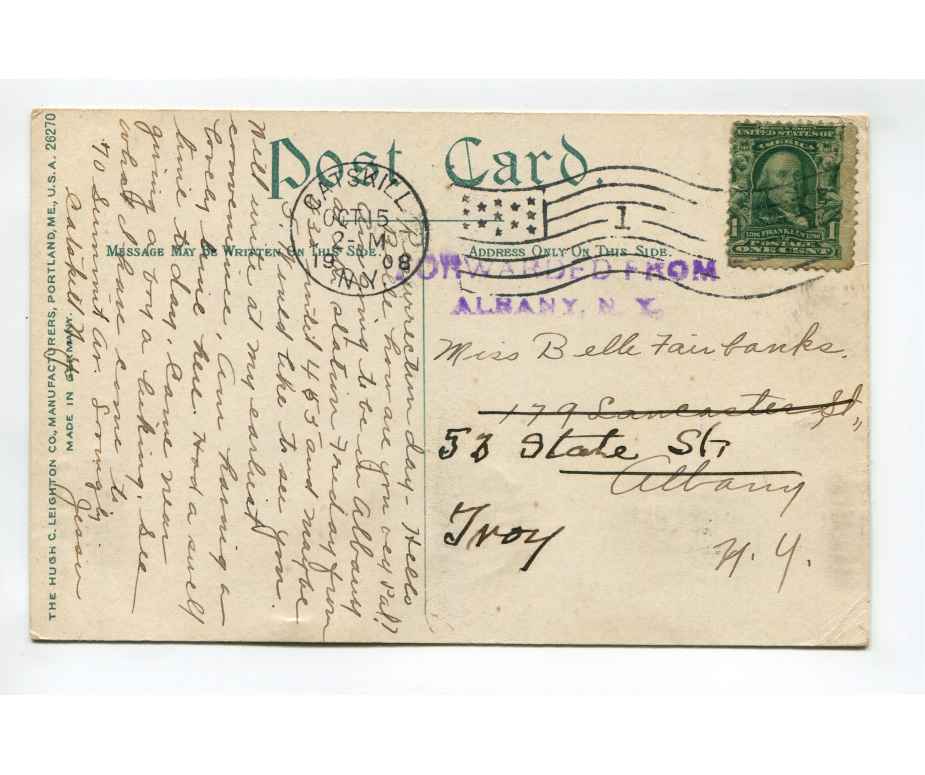 Post Card.
MESSAGE MAY BE WRITTEN ON THIS SIDE.
ADDRESS ONLY ON THIS SIDE.
CATSKILL
OCT 15
M
1908
N.Y.
1
UNITED STATES OF
AMERICA
1 1
FRANKLIN
POSTAGE
ONE CENT
FORWARDED FROM
ALBANY, N. Y.
Miss Belle Fairbanks.
179 Lancaster St.,
53 State St.
Albany
Troy
N. Y.
Resurrection day - Hello
Belle how are you very
Am going to be in Albany
at station Friday from
until 4 53 and maybe
I would like to see you.
Will write at my earliest
convenience, Am having a
lovely time here. Had a swell
time to-day, Came near
giving a boy a licking. See
what I have come to
70 Summit Av. Lovingly
Catskill N.Y. Jessie
THE HUGH C. LEIGHTON CO., MANUFACTURERS, PORTLAND, ME., U.S.A. 26270
MADE IN GERMANY.